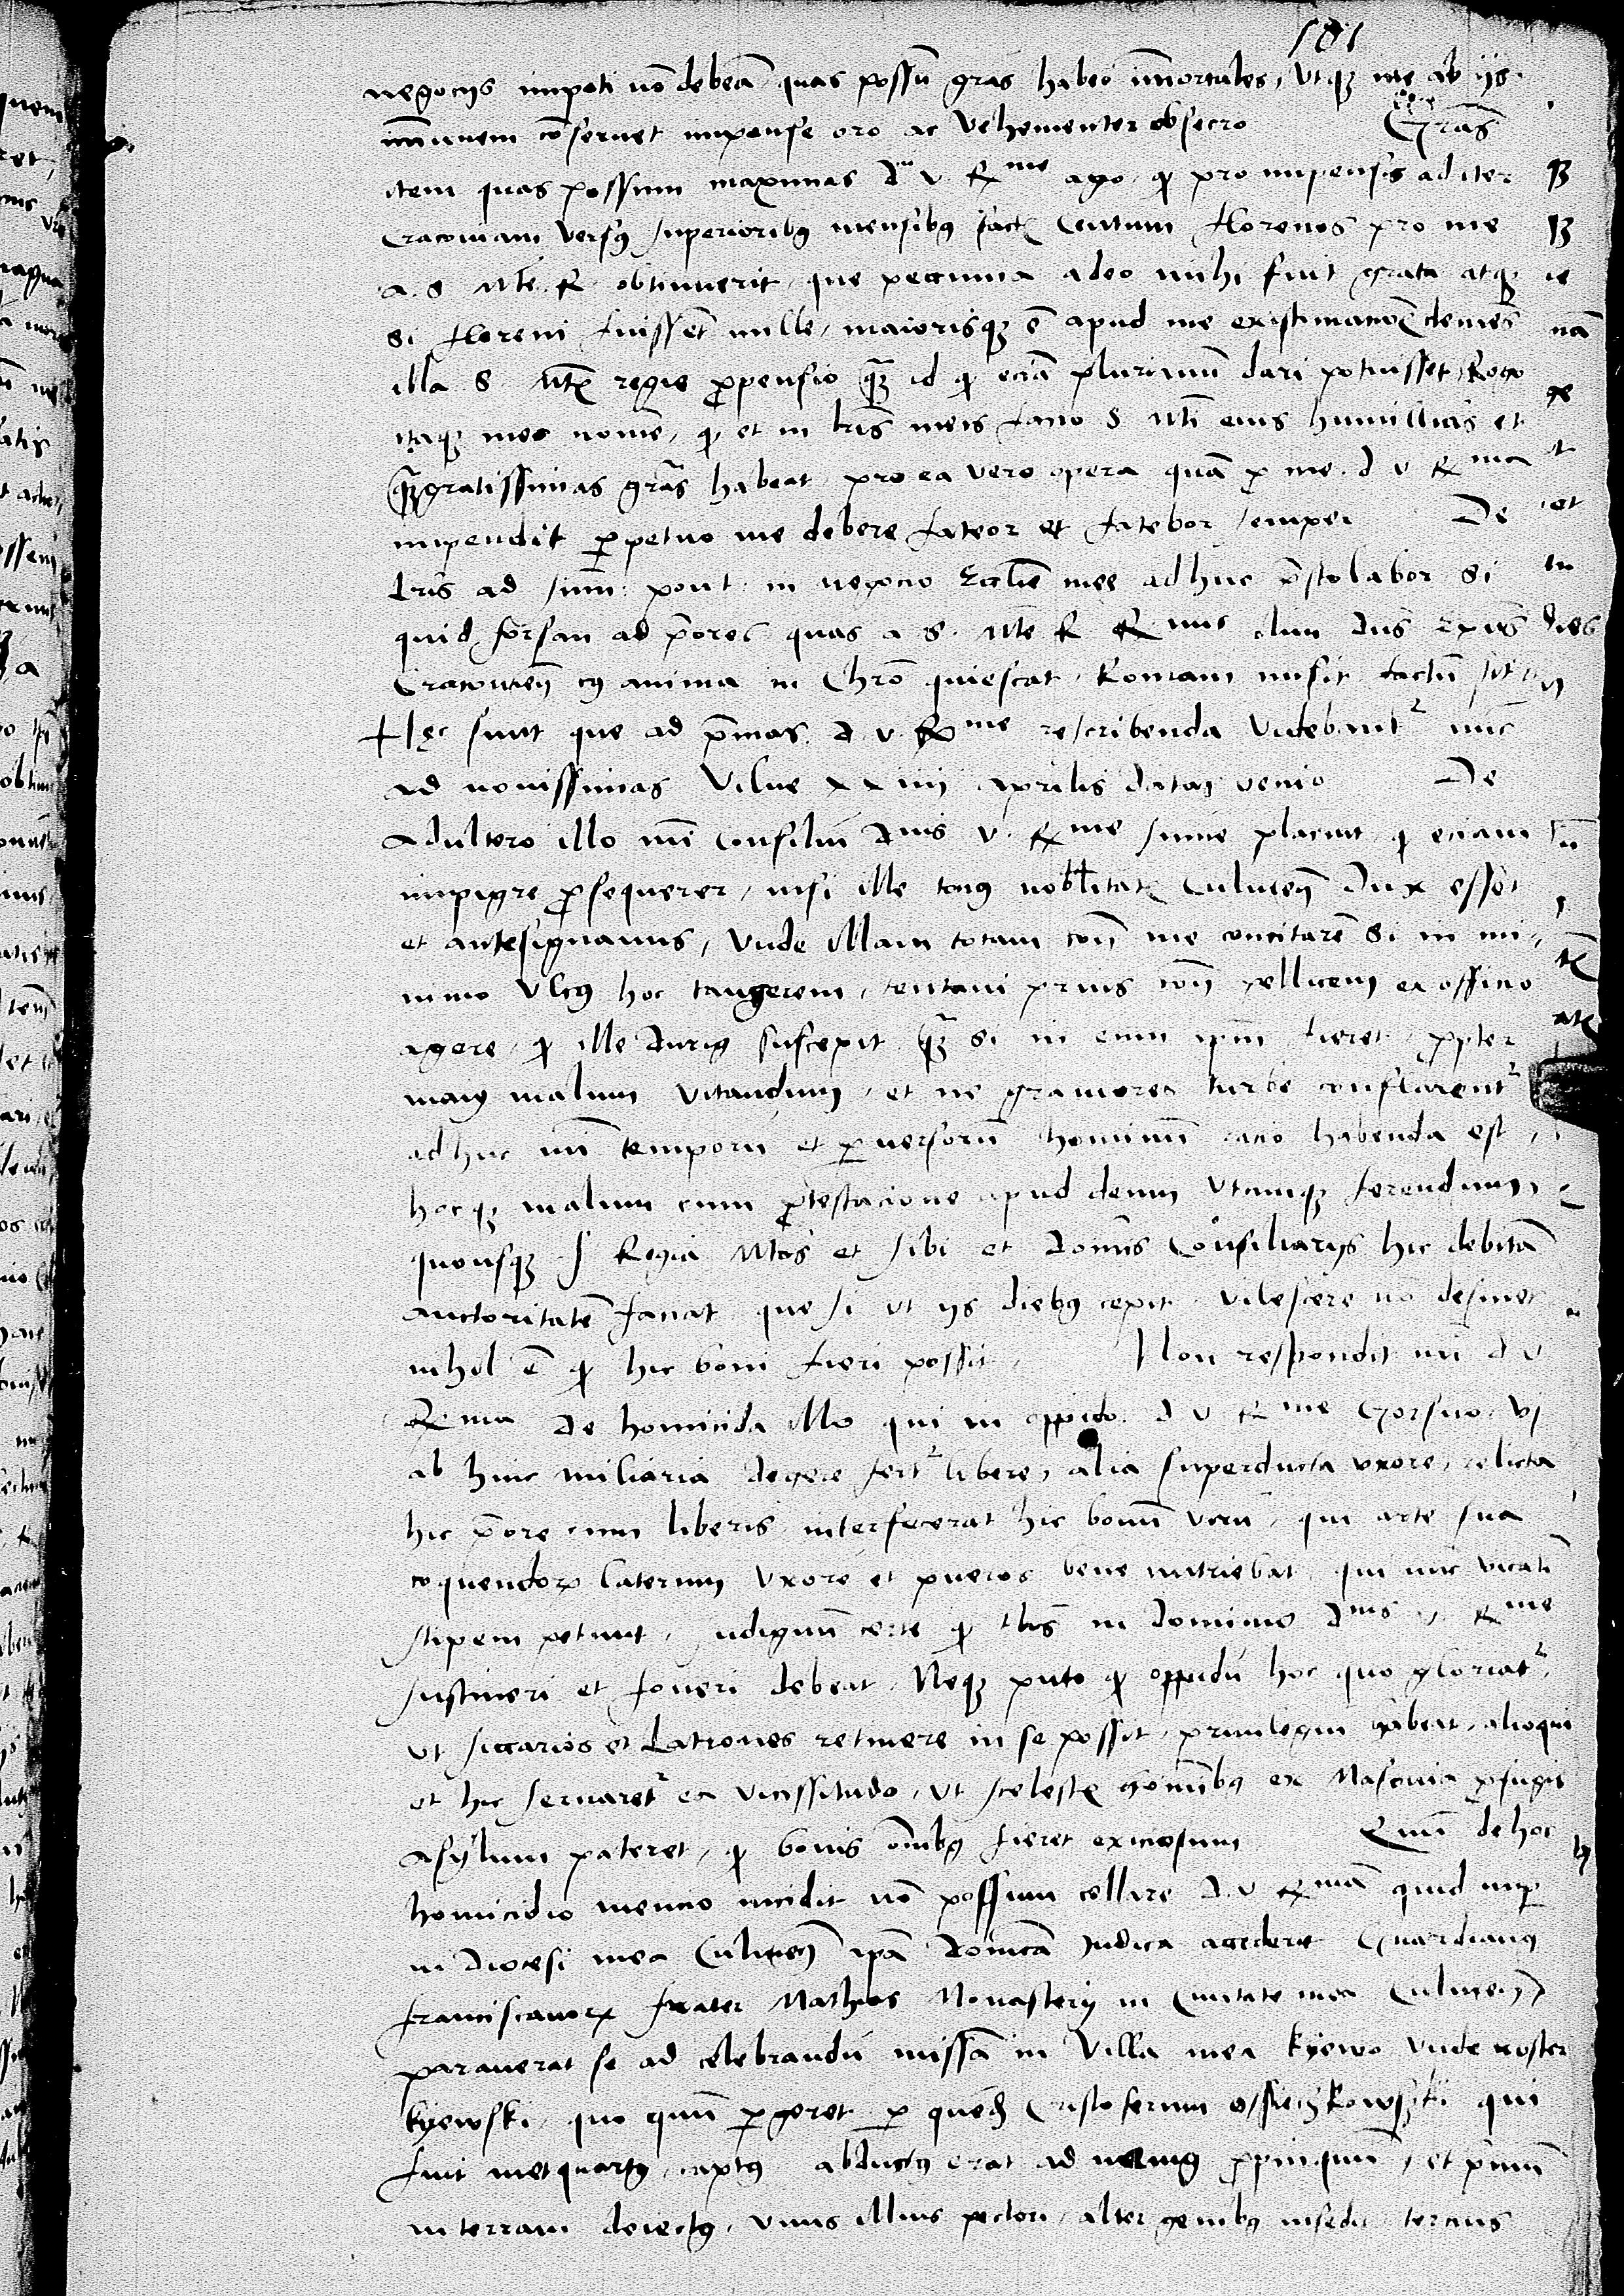 181
negocijs impeti nō debeā quas possū grās habeo īmortales, vtqz me ab ijs
īmunem cōseruet impense oro ac vehementer obsecro Grās
item quas possum maximas d. v. Rme ago, qͥ pro impensis ad iter
Cracouiam versus superioribus mensibus factis centum florenos pro me
a. S. Mte. R. obtinuerit, que peccunia adeo mihi fuit grata atqz
si floreni fuissēt mille, maiorisqz ē apud me existimatiōis clemēs
illa S. Mtis regie propensio qz id qͥ eciā plurimū dari potuisset, Rogo
itaqz meo nomīe, qͥ et in lrīs meis facio S. Mti eius humillimas et
qzgratissimas grās habeat, pro ea vero opera quā pro me d. v. Rma
impendit perpetuo me debere fateor et fatebor semper De
Lrīs ad sum: pont: in negocio Ecclie mee adhuc prestolabor si
quid forsan ad priores quas a S. Mte R Rmus olim dns Epus
Cracouien cuius anima in Chro quiescat, Romam misit factū sit
Hec sunt que ad primas d. v. Rme rescribenda videbantur nūc
ad nouissimas Vilne xxiiij aprilis datas venio De
Adultero illo mī consiliū dnis v. Rme sume placuit, qͥ etiam
impigre prosequerer, nisi ille totius nobilitatis Culmen Dux esset
et antesignanus, vnde illam totam con me concitarē si in mi-
nimo vlcus hoc tangerem, tentaui prius con pellicem ex officio
agere, qͥ ille durius suscepit qz si in eum ipm fieret, propter
maius malum vitandum, et ne grauiores turbe conflarentur
adhuc mī temporū et peruersorū hominum racio habenda est,
hocqz malum cum protestacione apud deum vtcumqz ferendum,
quousqz S Regia Mtas et sibi et domīs Consiliarijs hic debitā
auctoritatē faciat que si vt ijs diebus cepit vilescere nō desinet
nihil ē qͥ hic boni fieri possit, Non respondit mi d v
Rma de homicida illo qui in oppido d v Rme Gorsno, vj
ab hinc miliaria degere fertur libere, alia superducta vxore, relicta
hic priore cum liberis, interfecerat hic bonū virū, qui arte sua
coquendorum laterum vxorē et pueros bene nutriebat, qui nūc vicatī
stipem petunt, Indignū certe qͥ tlis in dominio dnis v. Rme
sustineri et foueri debeat, Neqz puto qͥ oppidū hoc quo gloriatur,
vt siccarios et Latrones retinere in se possit, priuilegiū habeat, alioqui
et hic seruaretur ea vicissitudo, vt scelestis hominibus ex Masouia profugis
asylum pateret, qͥ bonis omibus fieret exiciosum Quū de hoc
homicidio mencio incidit nō possum cellare d. v Rmā quid nuper
in diocesi mea Culmen ipā dominicā Judica acciderit Guardianus
franciscanorum frater Mathias Monasterij in Ciuitate mea Culmen
parauerat se ad celebrandū missā in Villa mea Kyewo vnde noster
Kyewski, quo quū pergeret per quendā Cristoferum Ossieczkowski qui
fuit metquartus, captus abductus erat ad nemus propinquū, et primū
in terram deiectus, vnus illius pectori, alter genibus insedit tercius